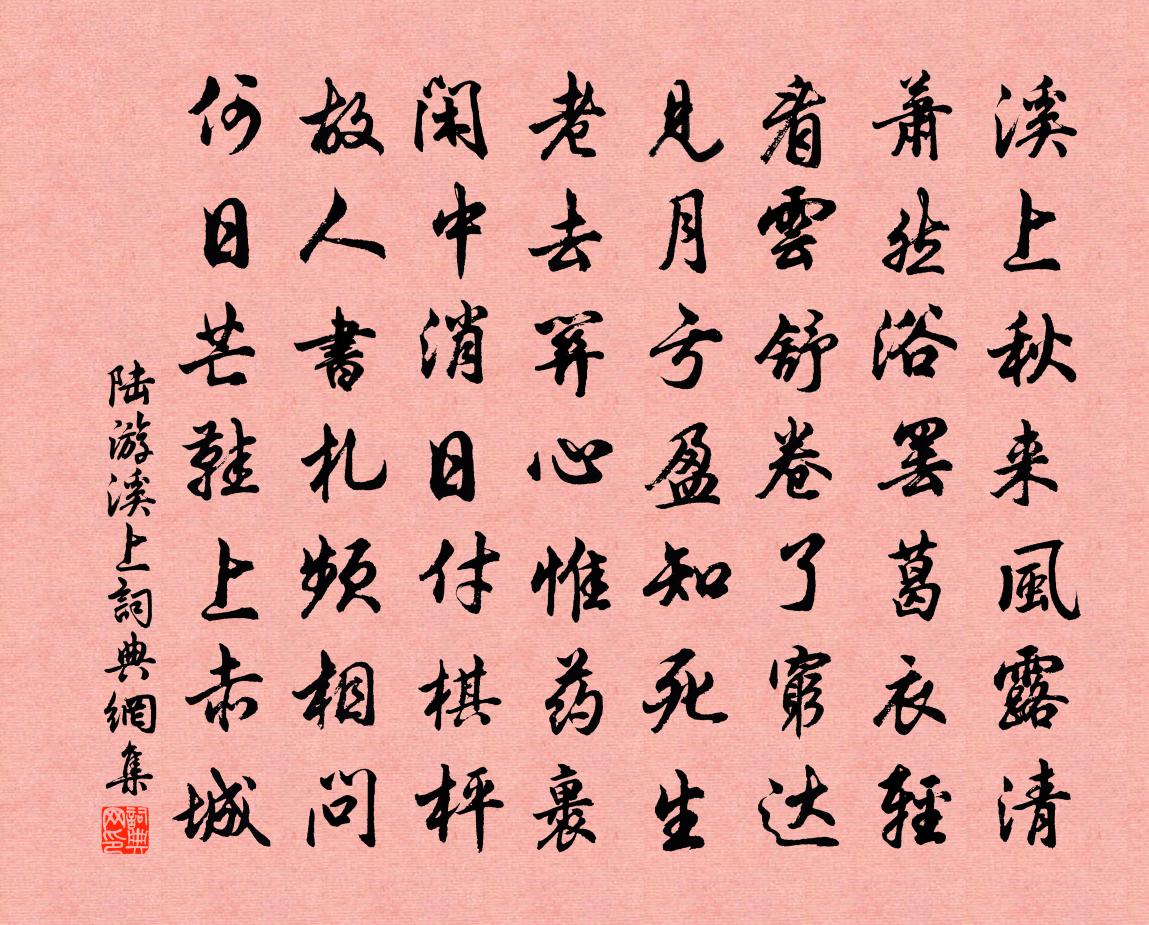 溪上秋来風露清
蕭然浴罢葛衣輕
看雲舒卷了窮达
見月亏盈知死生
老去關心惟药裹
閑中消日付棋枰
故人書札頻相問
何日芒鞋上赤城
陆游溪上詞典網集
詞典網印